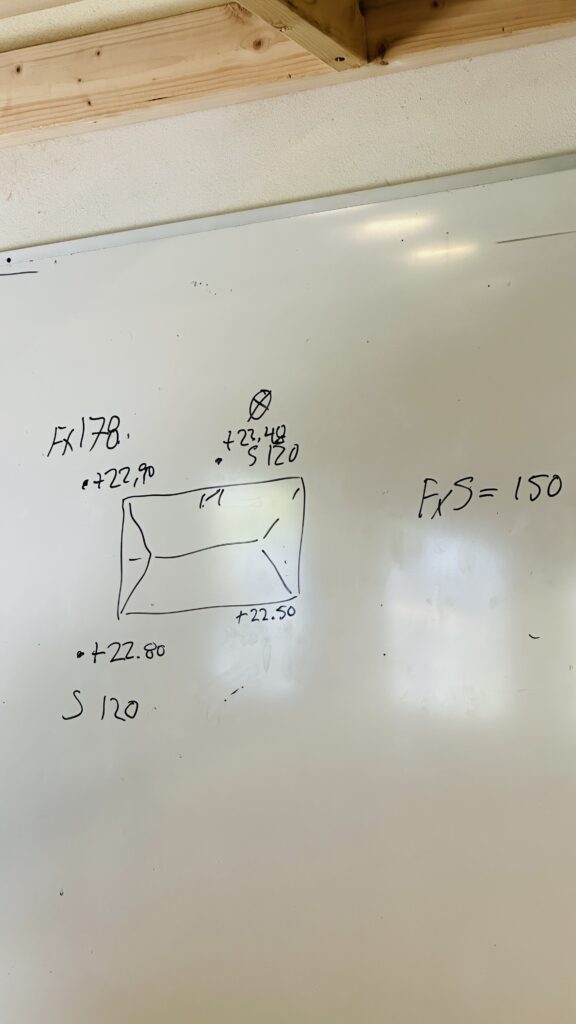 Fx178.
+22,90
+22,48
S 120
FxS = 150
+22.50
+22.80
S 120